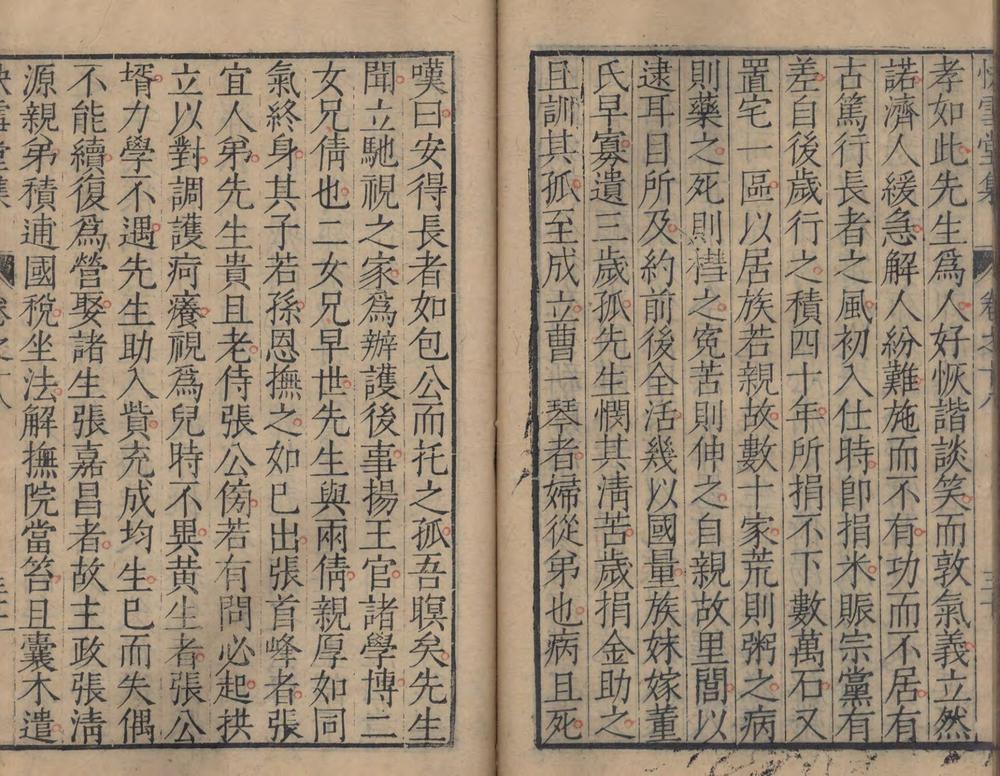 快雪堂集 卷之十八
孝如此先生爲人好恢諧談笑而敦氣義立然
諾濟人緩急解人紛難施而不有功而不居有
古篤行長者之風初入仕時卽捐米賑宗黨有
差自後歲行之積四十年所捐不下數萬石又
置宅一區以居族若親故數十家荒則粥之病
則藥之死則槥之寃苦則伸之自親故里閭以
逮耳目所及約前後全活幾以國量族妹嫁董
氏早寡遺三歲孤先生憫其淸苦歲捐金助之
且訓其孤至成立曹一琴者婦從弟也病且死
嘆曰安得長者如包公而托之孤吾瞑矣先生
聞立馳視之家爲辦護後事揚王官諸學博二
女兄倩也二女兄早世先生與兩倩親厚如同
氣終身其子若孫恩撫之如已出張首峰者張
宜人弟先生貴且老侍張公傍若有問必起拱
立以對調護疴癢視爲兒時不異黄生者張公
壻力學不遇先生助入貲充成均生已而失偶
不能續復爲營娶諸生張嘉昌者故主政張淸
源親弟積逋國稅坐法解撫院當笞且囊木遣
快雪堂集 卷之十八